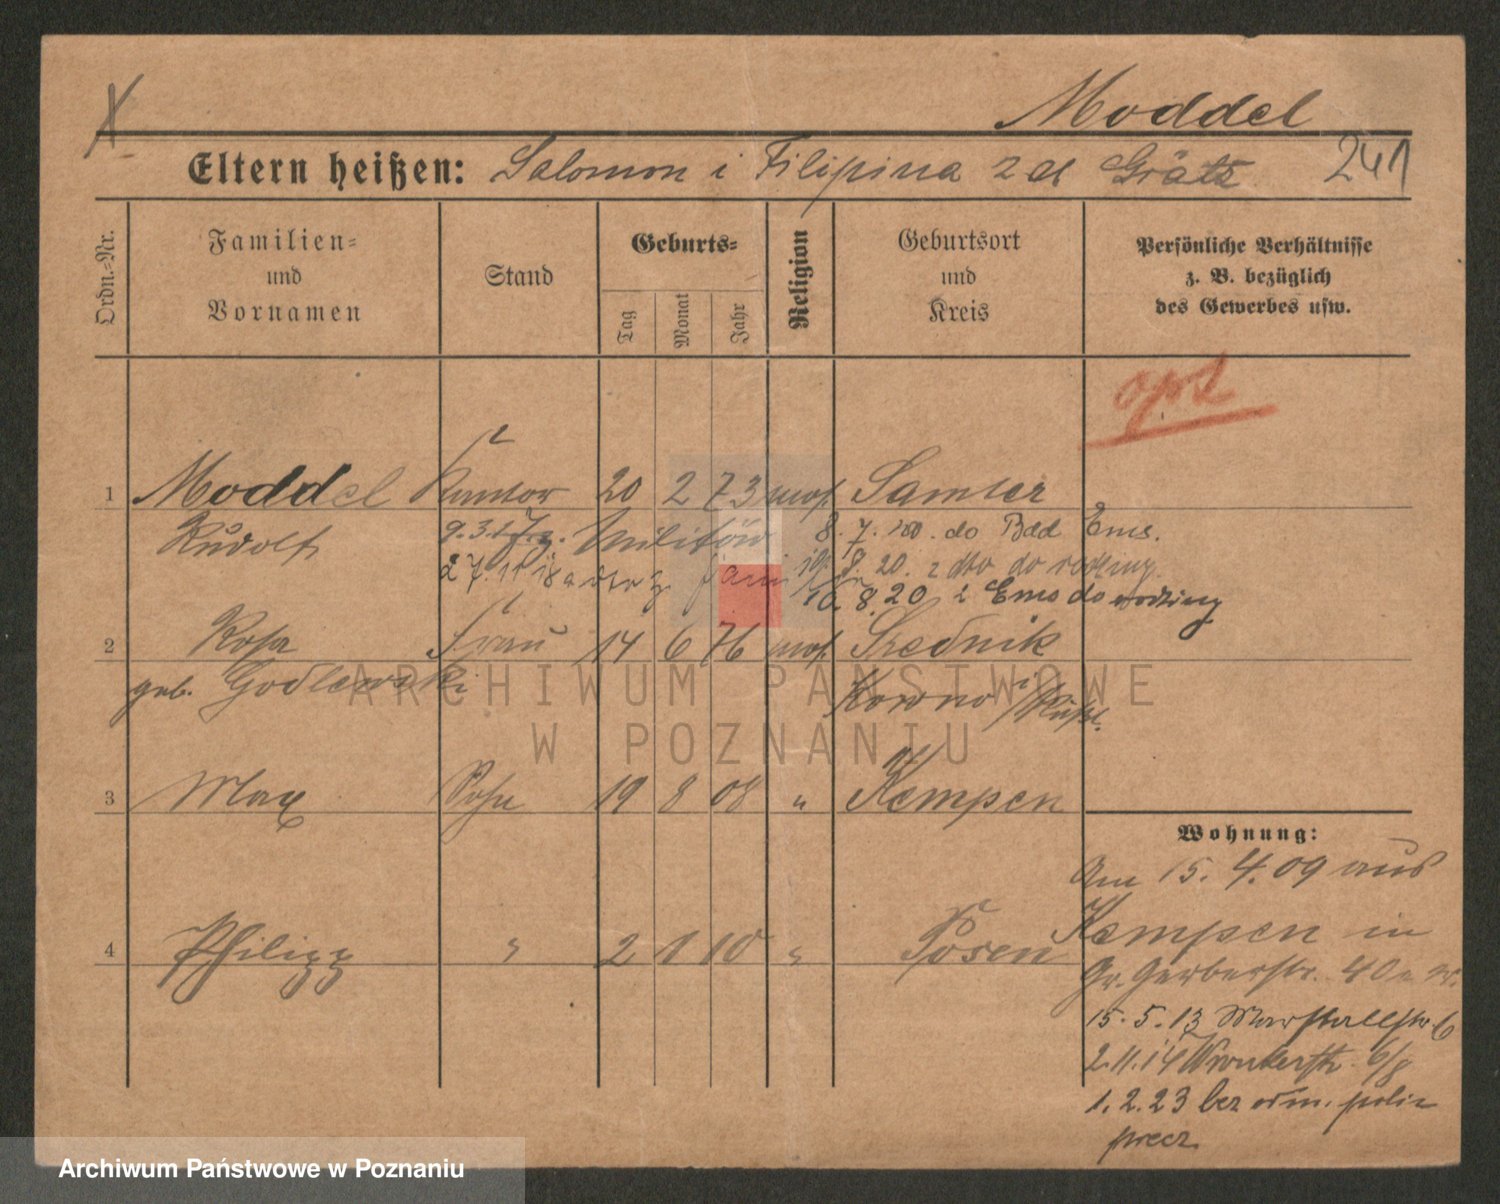 Moddel
Eltern heißen: Salomon i Filipina z d Grätz 241
Ordn.=Nr.
Familien=
und
Vornamen
Stand
Geburts=
Tag
Monat
Jahr
Religion
Geburtsort
und
Kreis
Persönliche Verhältnisse
z. B. bezüglich
des Gewerbes usw.
opt
1 Moddel Kantor 20 2 73 mos. Samter
Rudolf
Militär 8. 7. do Bad Ems.
27. 11 18 8. 20. z dto do rodziny.
10. 8. 20 z Ems do rodziny
2 Rosa Frau 14 6 76 mos. Srednik
geb. Godlewski Kowno /Rußl.
3 Max Sohn 19 8 08 " Kempen
4 Philipp " 2 1 10 " Posen
Wohnung:
Am 15. 4. 09 aus
Kempen in
Gr. Gerberstr. 40
15. 5. 13 Marstallstr 6
2. 11. 14 Wronkerstr. 6/8
1. 2. 23 bez
ARCHIWUM PAŃSTWOWE
W POZNANIU
Archiwum Państwowe w Poznaniu